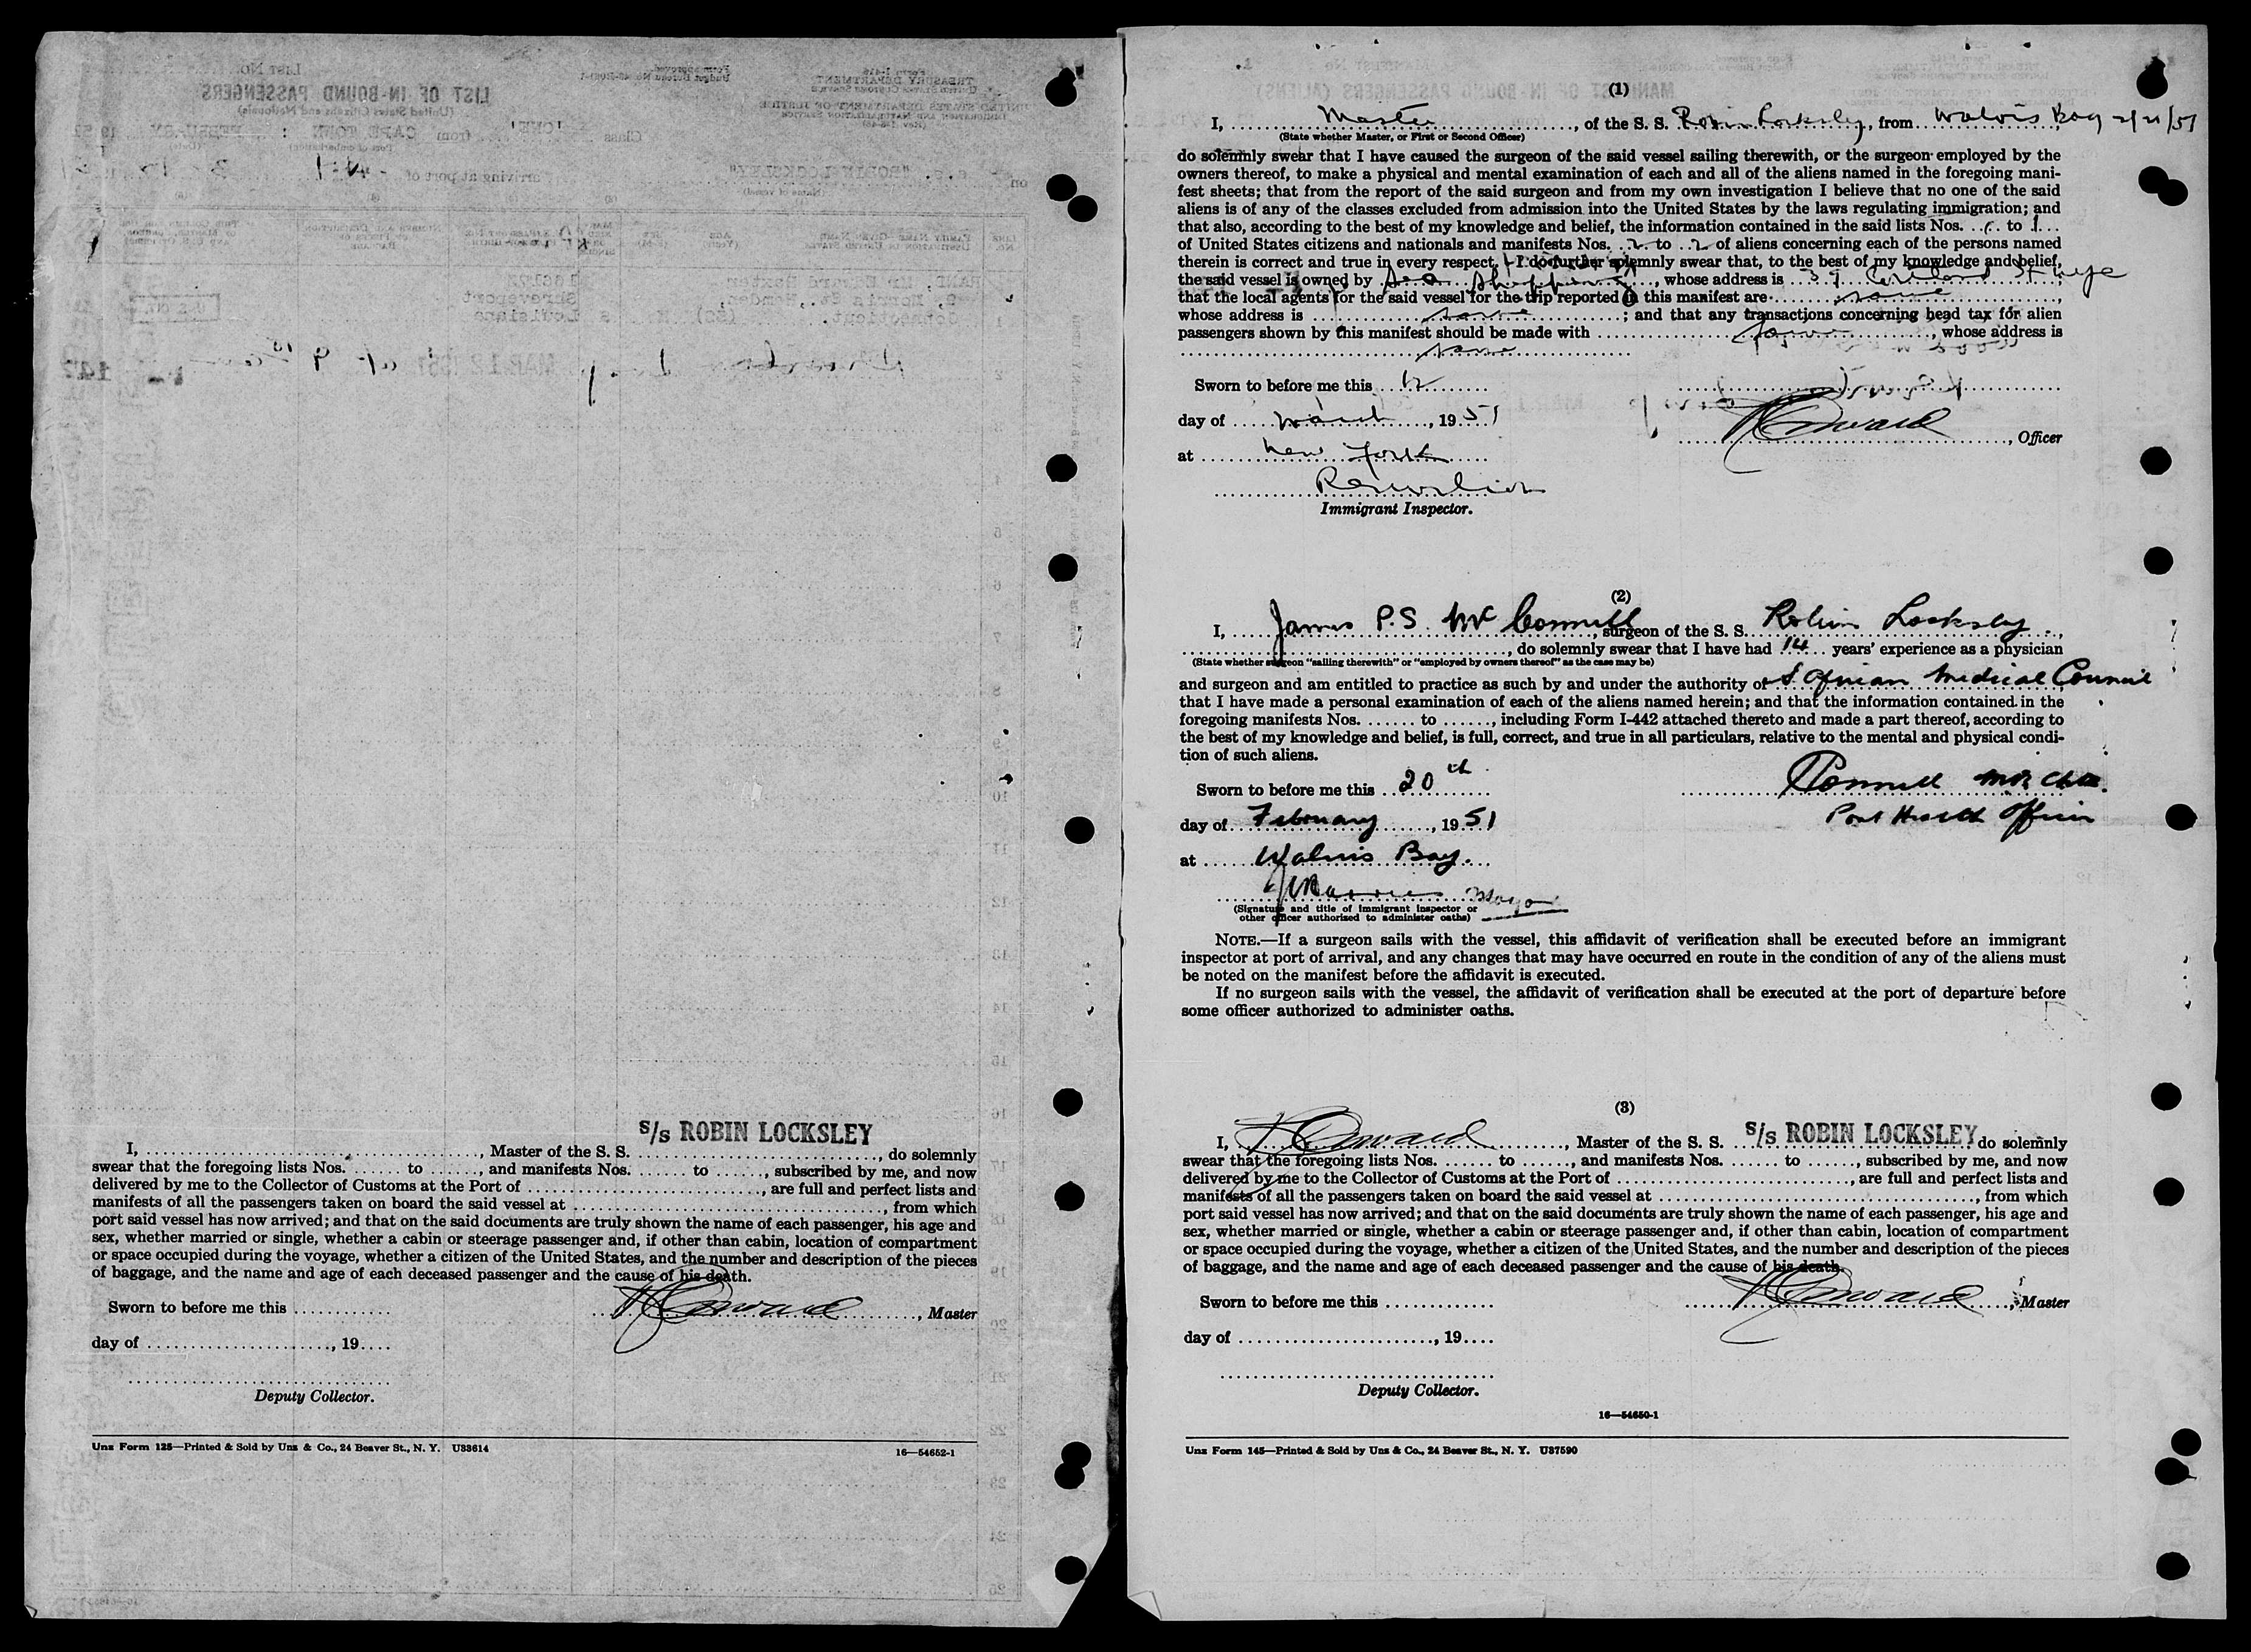 I, ............................................, Master of the S. S. S/S ROBIN LOCKSLEY, do solemnly
swear that the foregoing lists Nos. ....... to ......, and manifests Nos. ....... to ......, subscribed by me, and now
delivered by me to the Collector of Customs at the Port of ..............................., are full and perfect lists and
manifests of all the passengers taken on board the said vessel at ........................................, from which
port said vessel has now arrived; and that on the said documents are truly shown the name of each passenger, his age and
sex, whether married or single, whether a cabin or steerage passenger and, if other than cabin, location of compartment
or space occupied during the voyage, whether a citizen of the United States, and the number and description of the pieces
of baggage, and the name and age of each deceased passenger and the cause of his death.
Sworn to before me this ............
, Master
day of ........................, 19....
Deputy Collector.
Uns Form 125—Printed & Sold by Uns & Co., 24 Beaver St., N. Y. U33614
16—54652-1
(1)
I, Master, of the S. S. Robin Locksley, from Walvis Bay 2/21/51
(State whether Master, or First or Second Officer)
do solemnly swear that I have caused the surgeon of the said vessel sailing therewith, or the surgeon employed by the
owners thereof, to make a physical and mental examination of each and all of the aliens named in the foregoing mani-
fest sheets; that from the report of the said surgeon and from my own investigation I believe that no one of the said
aliens is of any of the classes excluded from admission into the United States by the laws regulating immigration; and
that also, according to the best of my knowledge and belief, the information contained in the said lists Nos. 1 to 1
of United States citizens and nationals and manifests Nos. 2 to 2 of aliens concerning each of the persons named
therein is correct and true in every respect. I do further solemnly swear that, to the best of my knowledge and belief,
the said vessel is owned by Sea Shipping, whose address is 39 Cortland St NYC
that the local agents for the said vessel for the trip reported in this manifest are same,
whose address is same; and that any transactions concerning head tax for alien
passengers shown by this manifest should be made with same, whose address is
same
Sworn to before me this 12
day of March, 1951
, Officer
at New York
Immigrant Inspector.
(2)
I, James P.S. McConnell, surgeon of the S. S. Robin Locksley,
, do solemnly swear that I have had 14 years' experience as a physician
(State whether surgeon "sailing therewith" or "employed by owners thereof" as the case may be)
and surgeon and am entitled to practice as such by and under the authority of S African Medical Council
that I have made a personal examination of each of the aliens named herein; and that the information contained in the
foregoing manifests Nos. ....... to ......, including Form I-442 attached thereto and made a part thereof, according to
the best of my knowledge and belief, is full, correct, and true in all particulars, relative to the mental and physical condi-
tion of such aliens.
Sworn to before me this 20th
day of February, 1951
Port Health Officer
at Walvis Bay.
(Signature and title of immigrant inspector or
other officer authorized to administer oaths)
NOTE.—If a surgeon sails with the vessel, this affidavit of verification shall be executed before an immigrant
inspector at port of arrival, and any changes that may have occurred en route in the condition of any of the aliens must
be noted on the manifest before the affidavit is executed.
If no surgeon sails with the vessel, the affidavit of verification shall be executed at the port of departure before
some officer authorized to administer oaths.
(3)
I, ............................................, Master of the S. S. S/S ROBIN LOCKSLEY do solemnly
swear that the foregoing lists Nos. ....... to ......, and manifests Nos. ....... to ......, subscribed by me, and now
delivered by me to the Collector of Customs at the Port of ..............................., are full and perfect lists and
manifests of all the passengers taken on board the said vessel at ........................................, from which
port said vessel has now arrived; and that on the said documents are truly shown the name of each passenger, his age and
sex, whether married or single, whether a cabin or steerage passenger and, if other than cabin, location of compartment
or space occupied during the voyage, whether a citizen of the United States, and the number and description of the pieces
of baggage, and the name and age of each deceased passenger and the cause of his death.
Sworn to before me this ............
, Master
day of ........................, 19....
Deputy Collector.
16—54650-1
Uns Form 145—Printed & Sold by Uns & Co., 24 Beaver St., N. Y. U37590